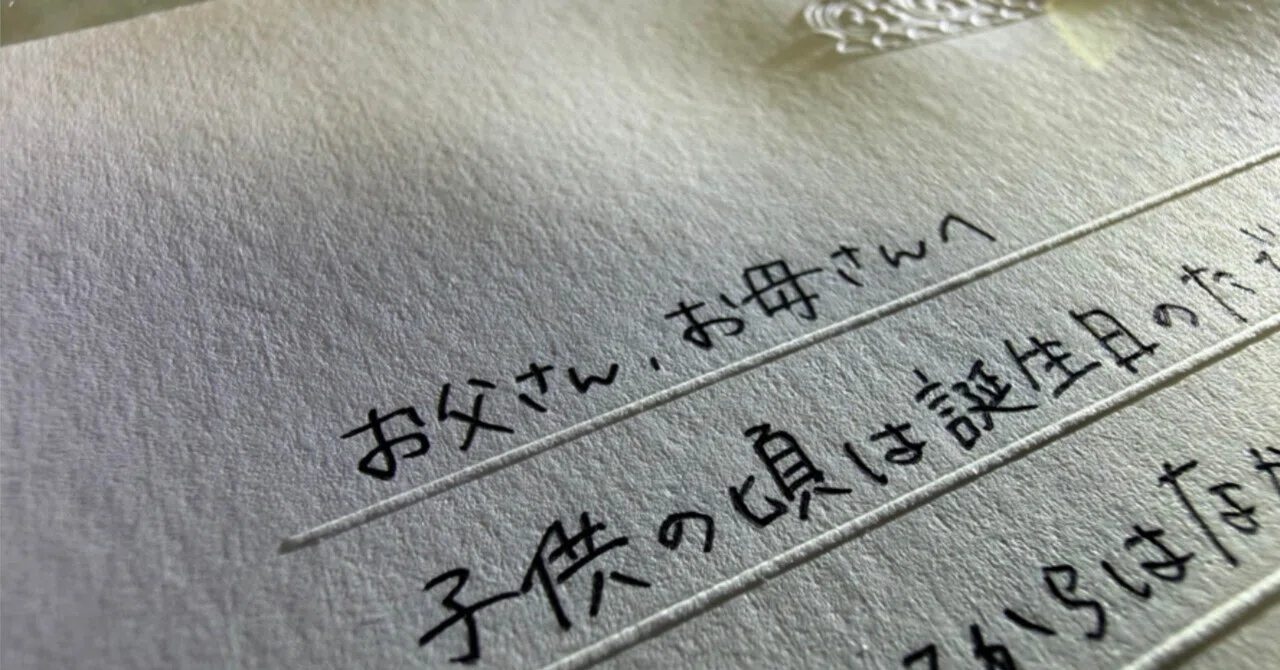 お父さん、お母さんへ
子供の頃は誕生日のたび
からはなか